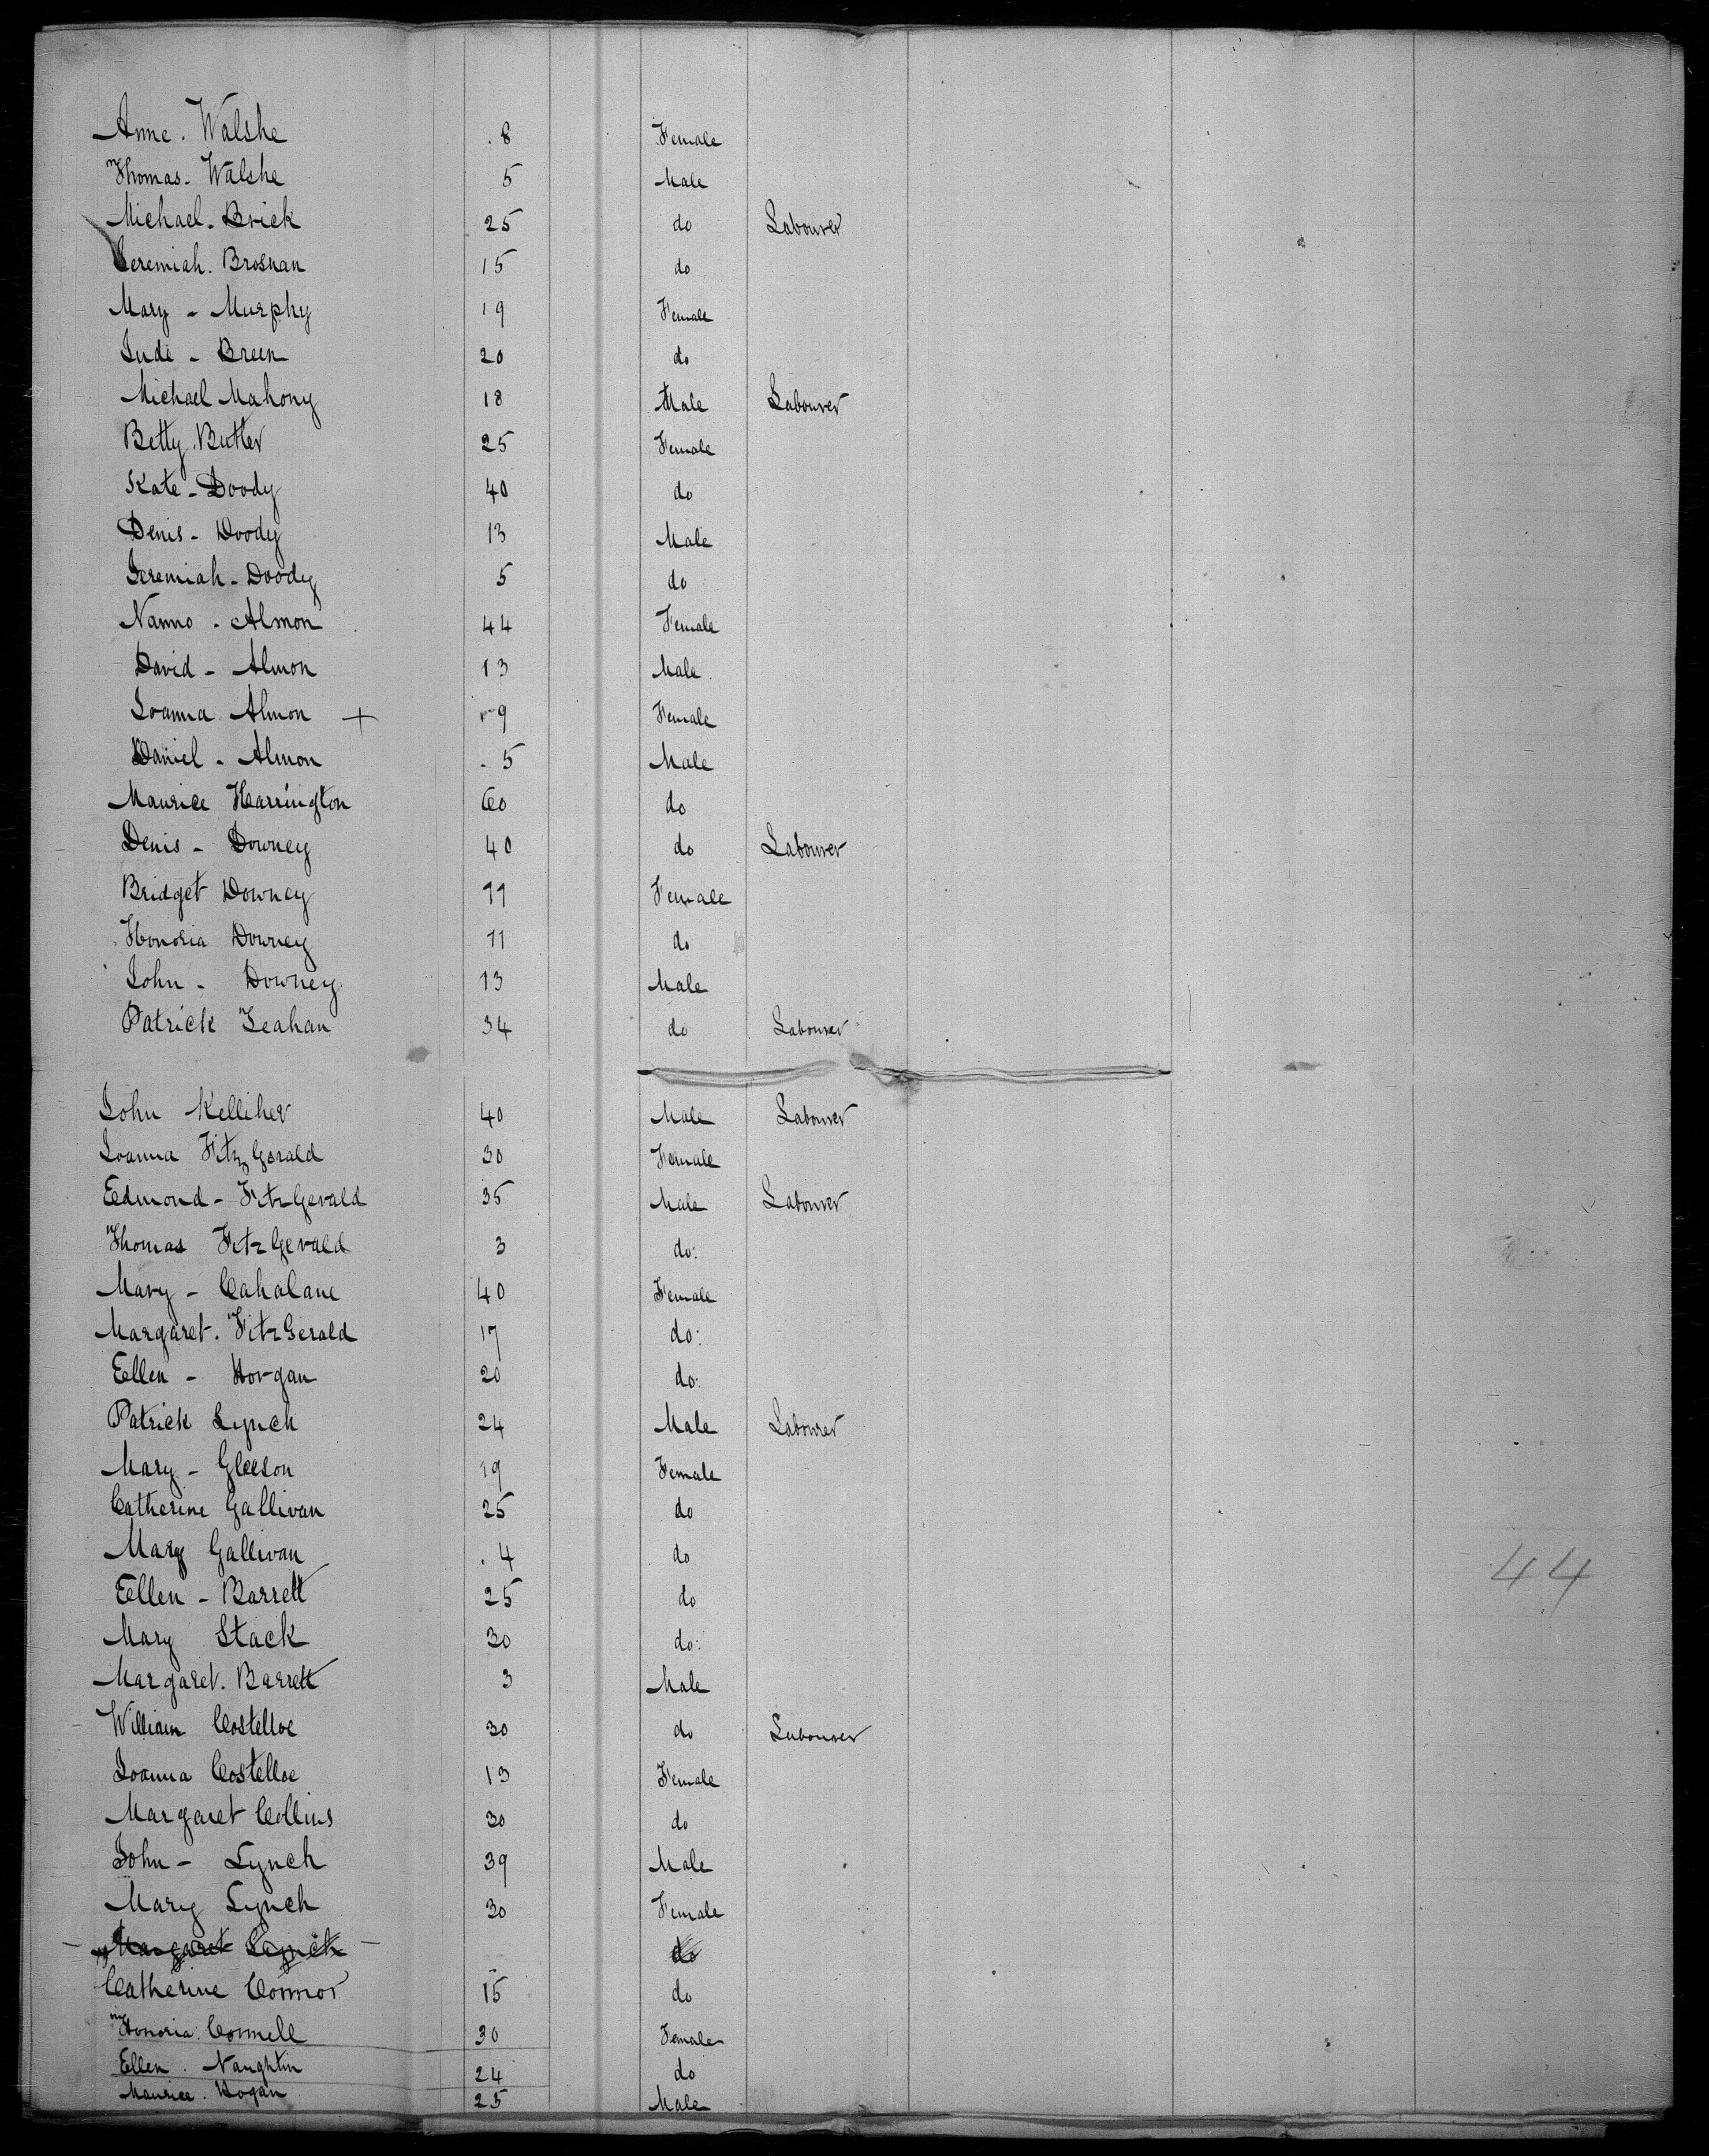 Anne. Walshe .8 Female
Thomas. Walshe 5 Male
Michael. Brick 25 do Labourer
Jeremiah. Brosnan 15 do
Mary - Murphy 19 Female
Jude - Breen 20 do
Michael Mahony 18 Male Labourer
Betty. Butler 25 Female
Kate - Doody 40 do
Denis - Doody 13 Male
Jeremiah - Doody 5 do
Nanno . Almon 44 Female
David - Almon 13 Male
Joanna Almon + 9 Female
Daniel - Almon . 5 Male
Maurice Harrington 60 do
Denis - Downey 40 do Labourer
Bridget Downey 11 Female
Honoria Downey 11 do
John - Downey 13 Male
Patrick Leahan 34 do Labourer
John Kelliher 40 Male Labourer
Joanna FitzGerald 30 Female
Edmond - FitzGerald 35 Male Labourer
Thomas FitzGerald 3 do:
Mary - Cahalane 40 Female
Margaret. FitzGerald 17 do:
Ellen - Horgan 20 do:
Patrick Lynch 24 Male Labourer
Mary - Gleeson 19 Female
Catherine Gallivan 25 do
Mary Gallivan . 4 do
44
Ellen - Barrett 25 do
Mary Stack 30 do:
Margaret. Barrett 3 Male
William Costelloe 30 do Labourer
Joanna Costelloe 13 Female
Margaret Collins 30 do
John - Lynch 39 Male
Mary Lynch 30 Female
Margaret Lynch do
Catherine Connor 15 do
Honoria. Connell 30 Female
Ellen . Naughtin 24 do
Maurice . Hogan 25 Male